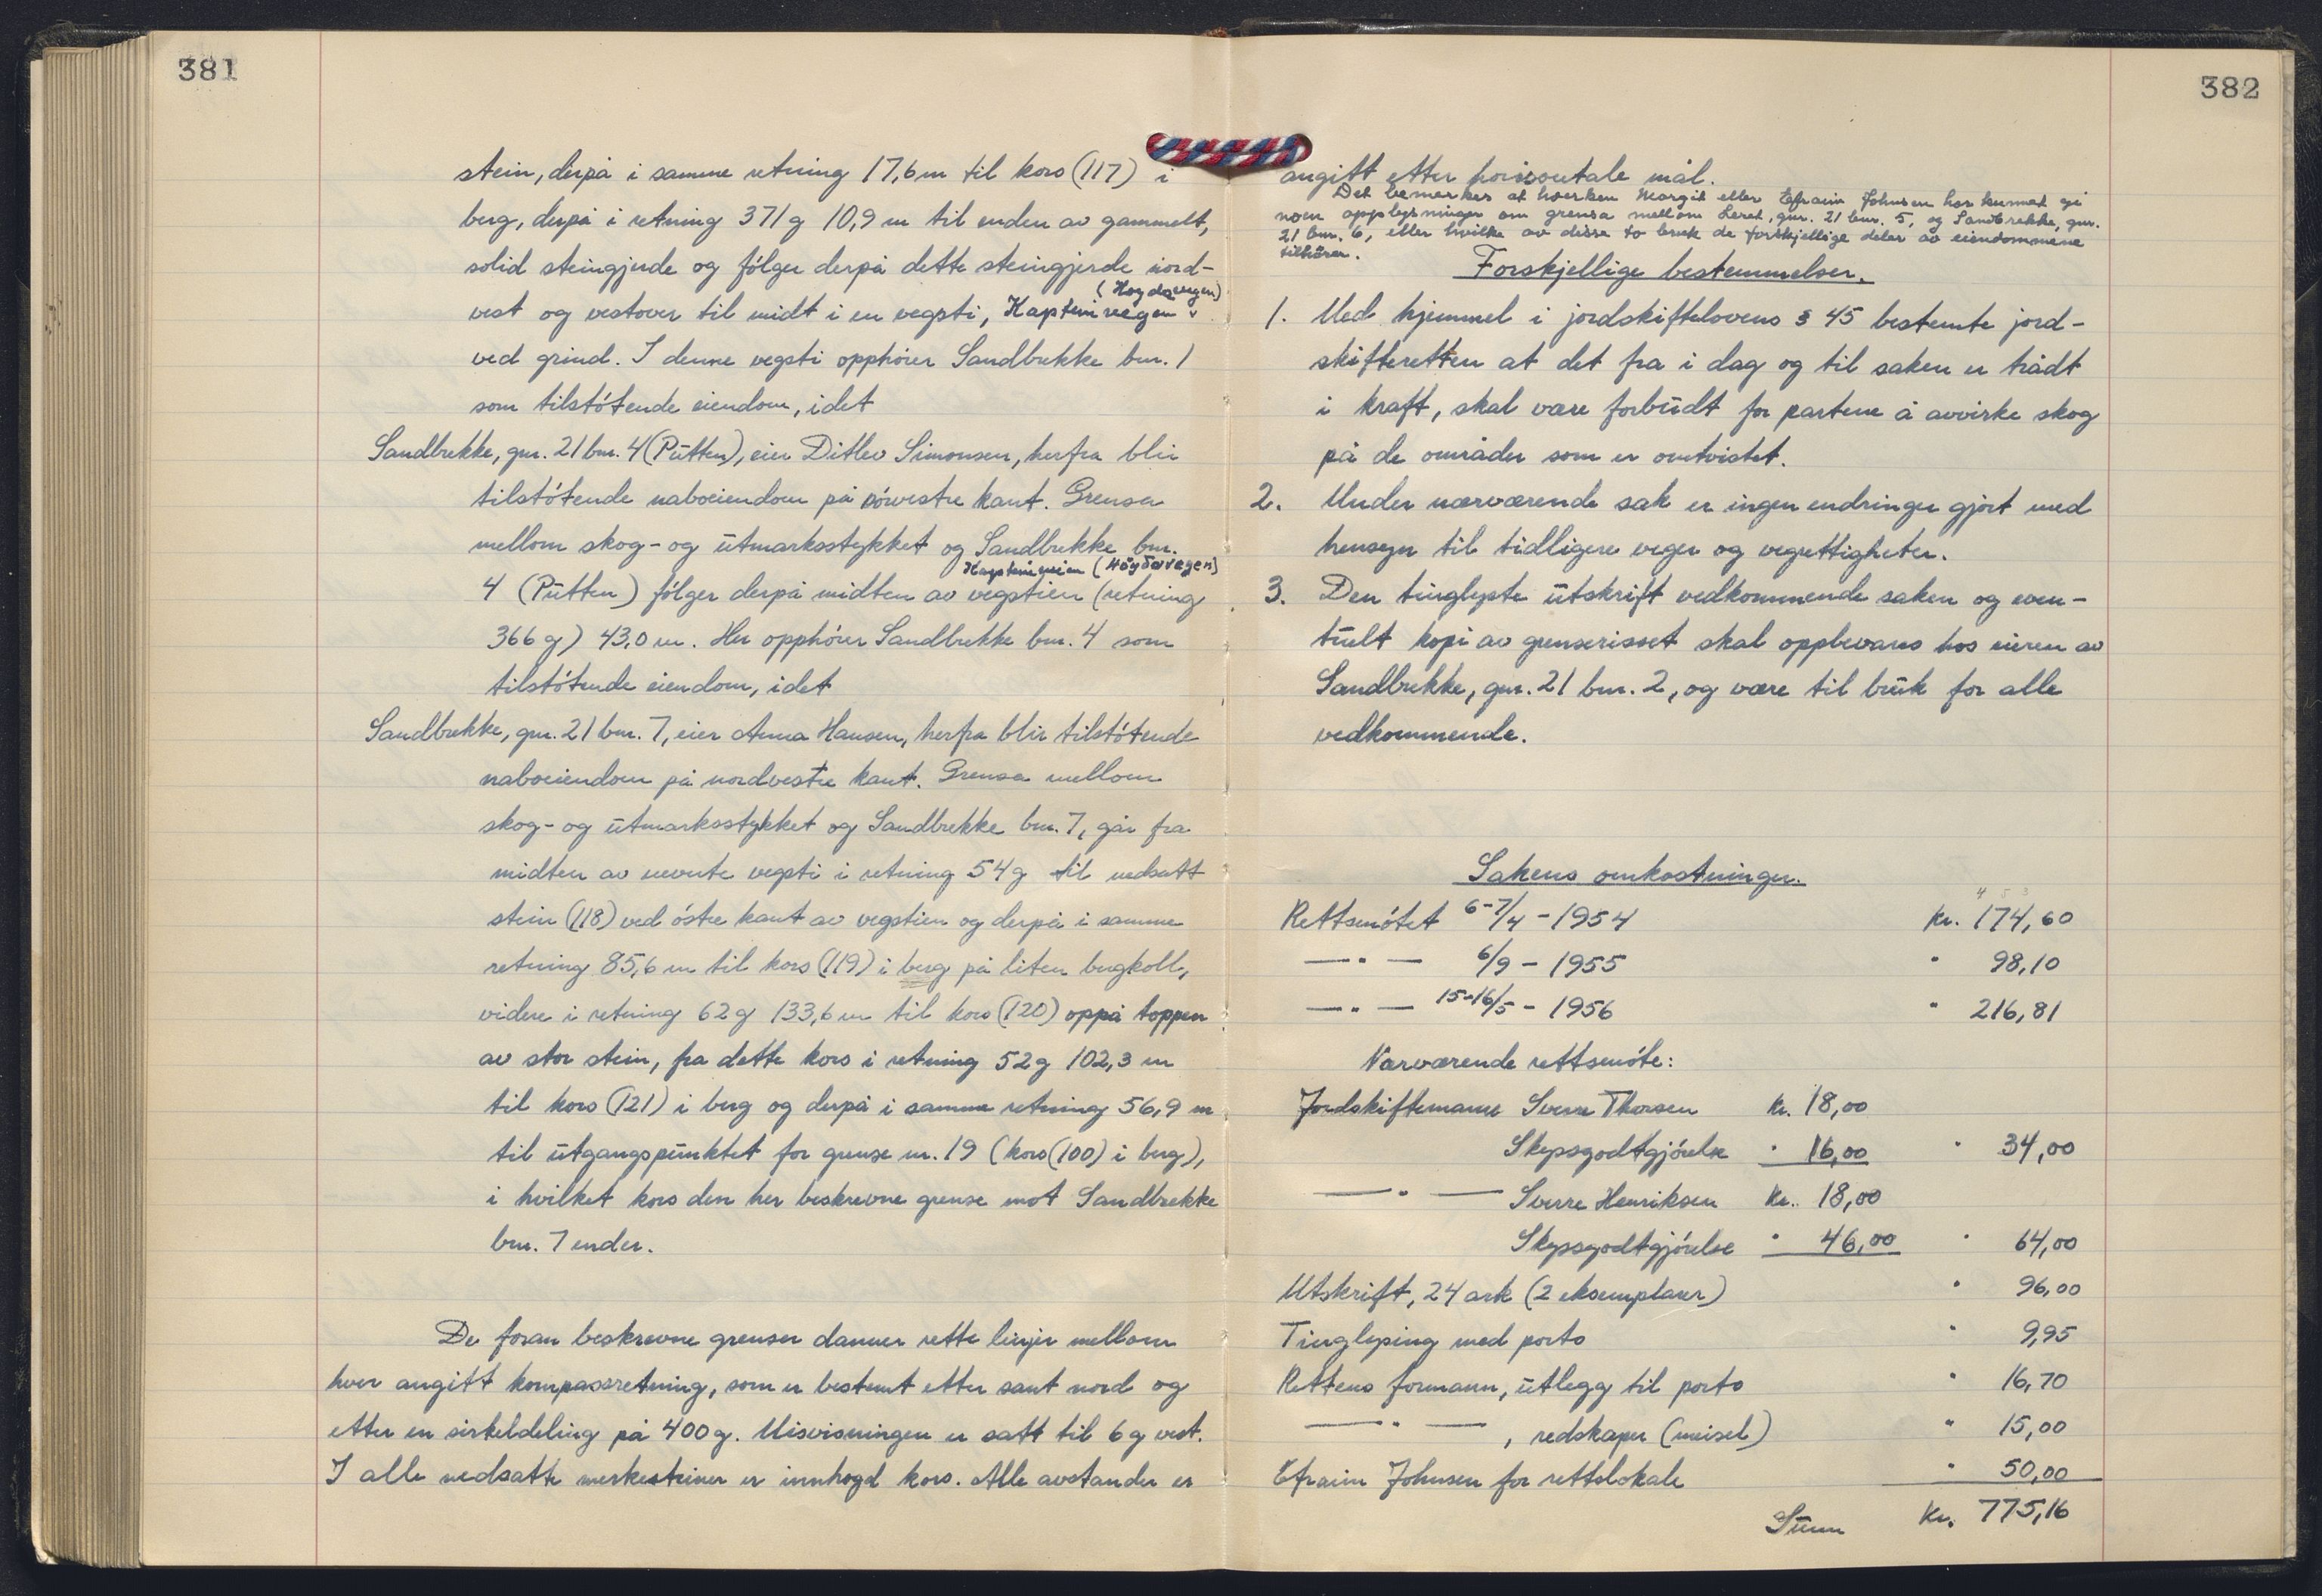 381
stein, derpå i samme retning 17,6 m til kors (117) i
berg, derpå i retning 371 g 10,9 m til enden av gammelt,
solid steingjerde og følger derpå dette steingjerde nord-
(Høydavegen)
vest og vestover til midt i en vegsti, Kapteinvegen
ved grind. I denne vegsti opphører Sandbrekke bnr. 1
som tilstøtende eiendom, idet
Sandbrekke, gnr. 21 bnr. 4 (Putten), eier Ditlev Simonsen, herfra blir
tilstøtende naboeiendom på nordvestre kant. Grensa
mellom skog- og utmarksstykket og Sandbrekke bnr.
Kapteinveien (Høydavegen)
4 (Putten) følger derpå midten av vegstien (retning
366 g) 43,0 m. Her opphører Sandbrekke bnr. 4 som
tilstøtende eiendom, idet
Sandbrekke, gnr. 21 bnr. 7, eier Anna Hansen, herfra blir tilstøtende
naboeiendom på nordvestre kant. Grensa mellom
skog- og utmarksstykket og Sandbrekke bnr. 7, går fra
midten av nevnte vegsti i retning 54 g til nedsatt
stein (118) ved østre kant av vegstien og derpå i samme
retning 85,6 m til kors (119) i berg på liten bergkoll,
videre i retning 62 g 133,6 m til kors (120) oppå toppen
av stor stein, fra dette kors i retning 52 g 102,3 m
til kors (121) i berg og derpå i samme retning 56,9 m
til utgangspunktet for grense nr. 19 (kors (100) i berg),
i hvilket kors den her beskrevne grense mot Sandbrekke
bnr. 7 ender.
De foran beskrevne grenser danner rette linjer mellom
hver angitt kompassretning, som er bestemt etter sant nord og
etter en sirkeldeling på 400 g. Misvisningen er satt til 6 g vest.
I alle nedsatte merkesteiner er innhogd kors. Alle avstander er
382
angitt etter horisontale mål.
Det bemerkes at hverken Margit eller Efraim Johnsen har kunnet gi
noen opplysninger om grensa mellom Leret, gnr. 21 bnr. 5, og Sandbrekke, gnr.
21 bnr. 6, eller hvilke av disse to bruk de forskjellige deler av eiendommene
tilhører.
Forskjellige bestemmelser.
1. Med hjemmel i jordskiftelovens § 45 bestemte jord-
skifteretten at det fra i dag og til saken er trådt
i kraft, skal være forbudt for partene å avvirke skog
på de områder som er omtvistet.
2. Under nærværende sak er ingen endringer gjort med
hensyn til tidligere veger og vegrettigheter.
3. Den tinglyste utskrift vedkommende saken og even-
tuelt kopi av grenserisset skal oppbevares hos eieren av
Sandbrekke, gnr. 21 bnr. 2, og være til bruk for alle
vedkommende.
Sakens omkostninger.
4 5 3
Rettsmøtet 6-7/4 - 1954 Kr. 174,60
—"— 6/9 - 1955 " 98,10
—"— 15-16/5 - 1956 " 216,81
Nærværende rettsmøte:
Jordskiftemann Sverre Thorsen Kr. 18,00
Skyssgodtgjørelse " 16,00 " 34,00
—"— Sverre Henriksen Kr. 18,00
Skyssgodtgjørelse " 46,00 " 64,00
Utskrift, 24 ark (2 eksemplarer) " 96,00
Tinglysing med porto " 9,95
Rettens formann, utlegg til porto " 16,70
—"—, redskaper (meisel) " 15,00
Efraim Johnsen for rettslokale " 50,00
Sum Kr. 775,16